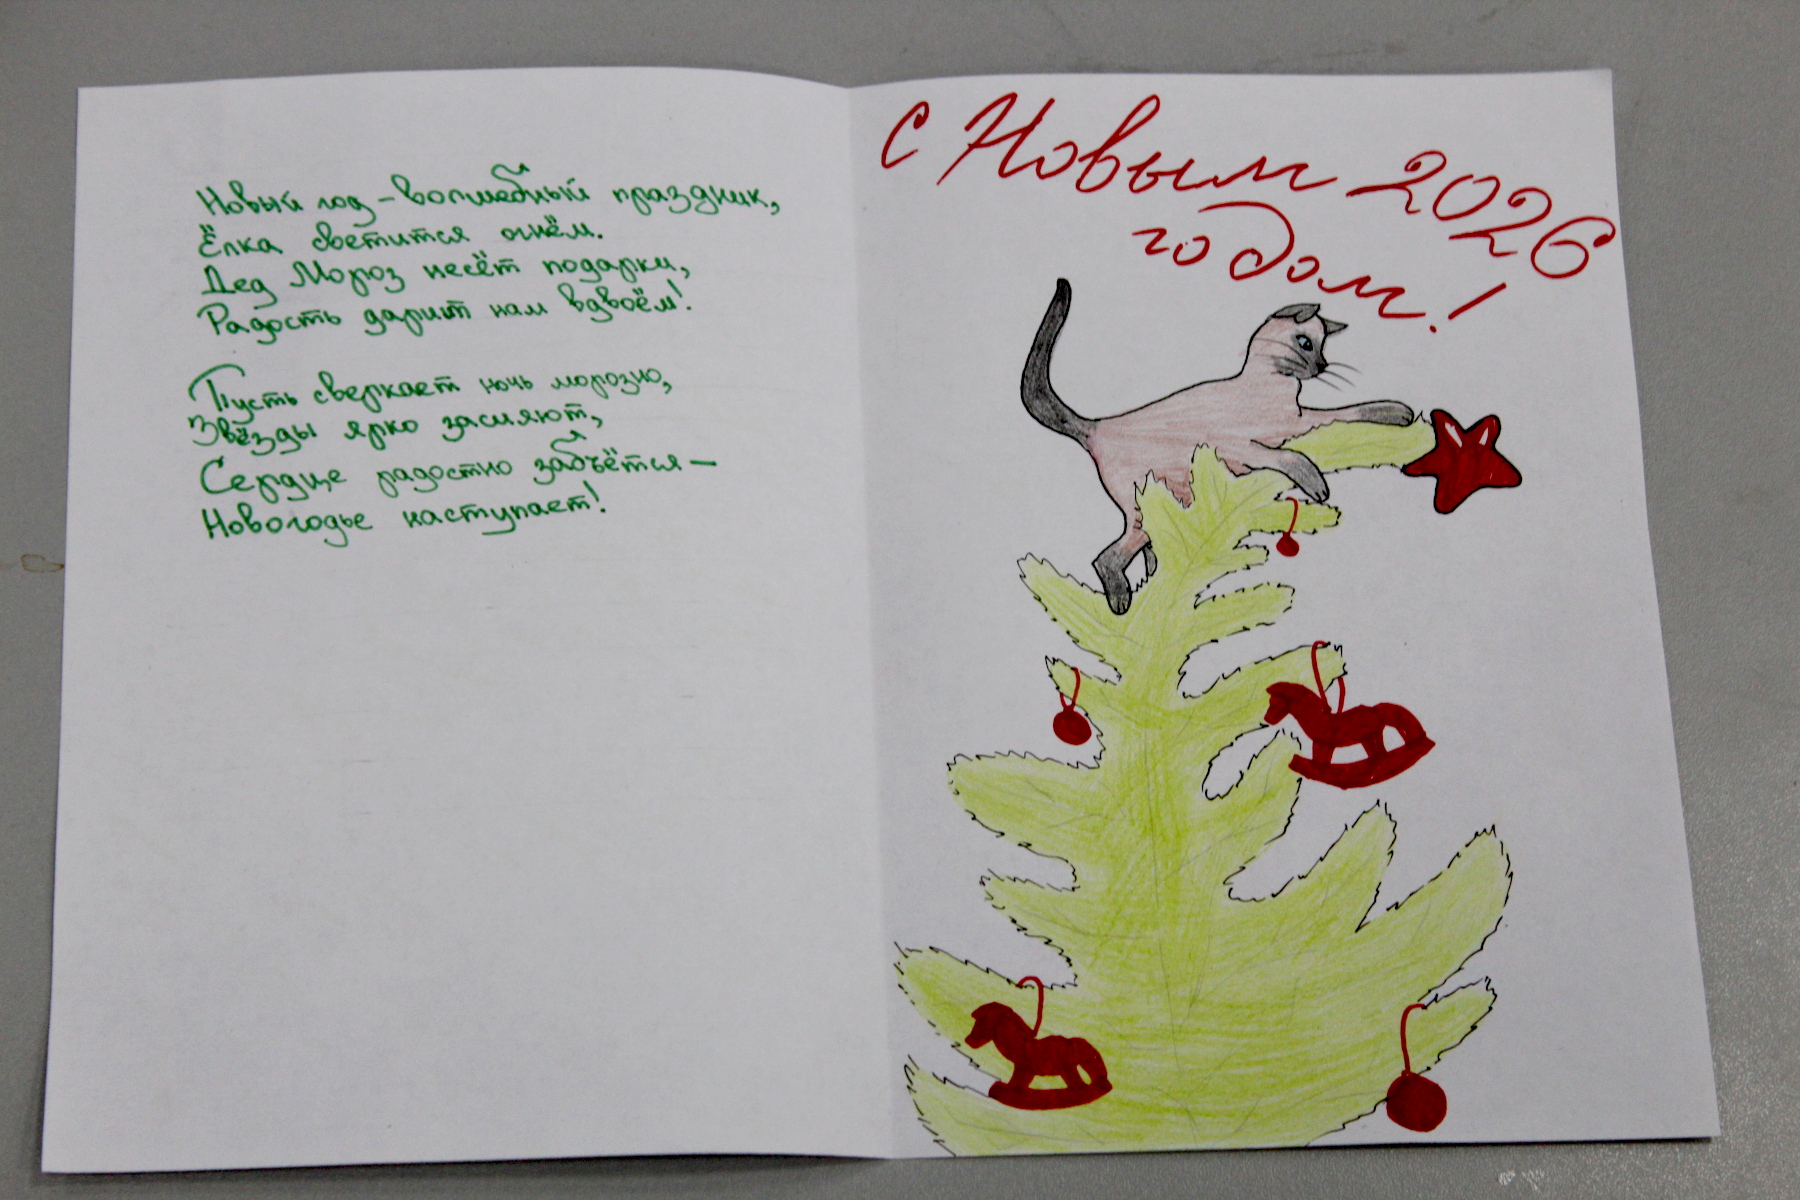 Новый год – волшебный праздник,
Ёлка светится огнём.
Дед Мороз несёт подарки,
Радость дарит нам вдвоём!
Пусть сверкает ночь морозно,
Звёзды ярко засияют,
Сердце радостно забьётся –
Новогодье наступает!
С Новым 2026
годом!